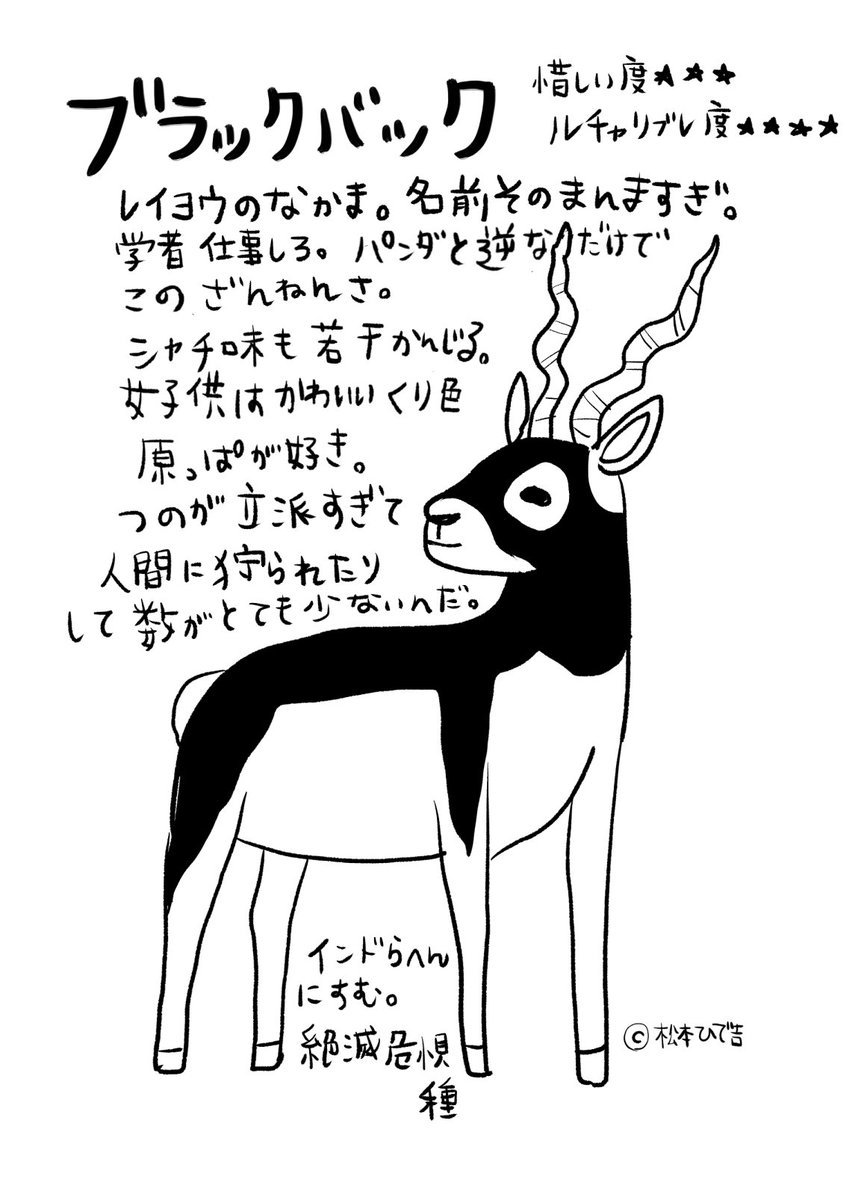 ブラックバック
惜しい度★★★
ルチャリブレ度★★★★
レイヨウのなかま。名前そのまんますぎ。
学者仕事しろ。パンダと逆なだけで
このざんねんさ。
シャチ味も若干かんじる。
女子供はかわいいくり色
原っぱが好き。
つのが立派すぎて
人間に狩られたり
して数がとても少ないんだ。
インドらへん
にすむ。
絶滅危惧
種
©松本ひで吉